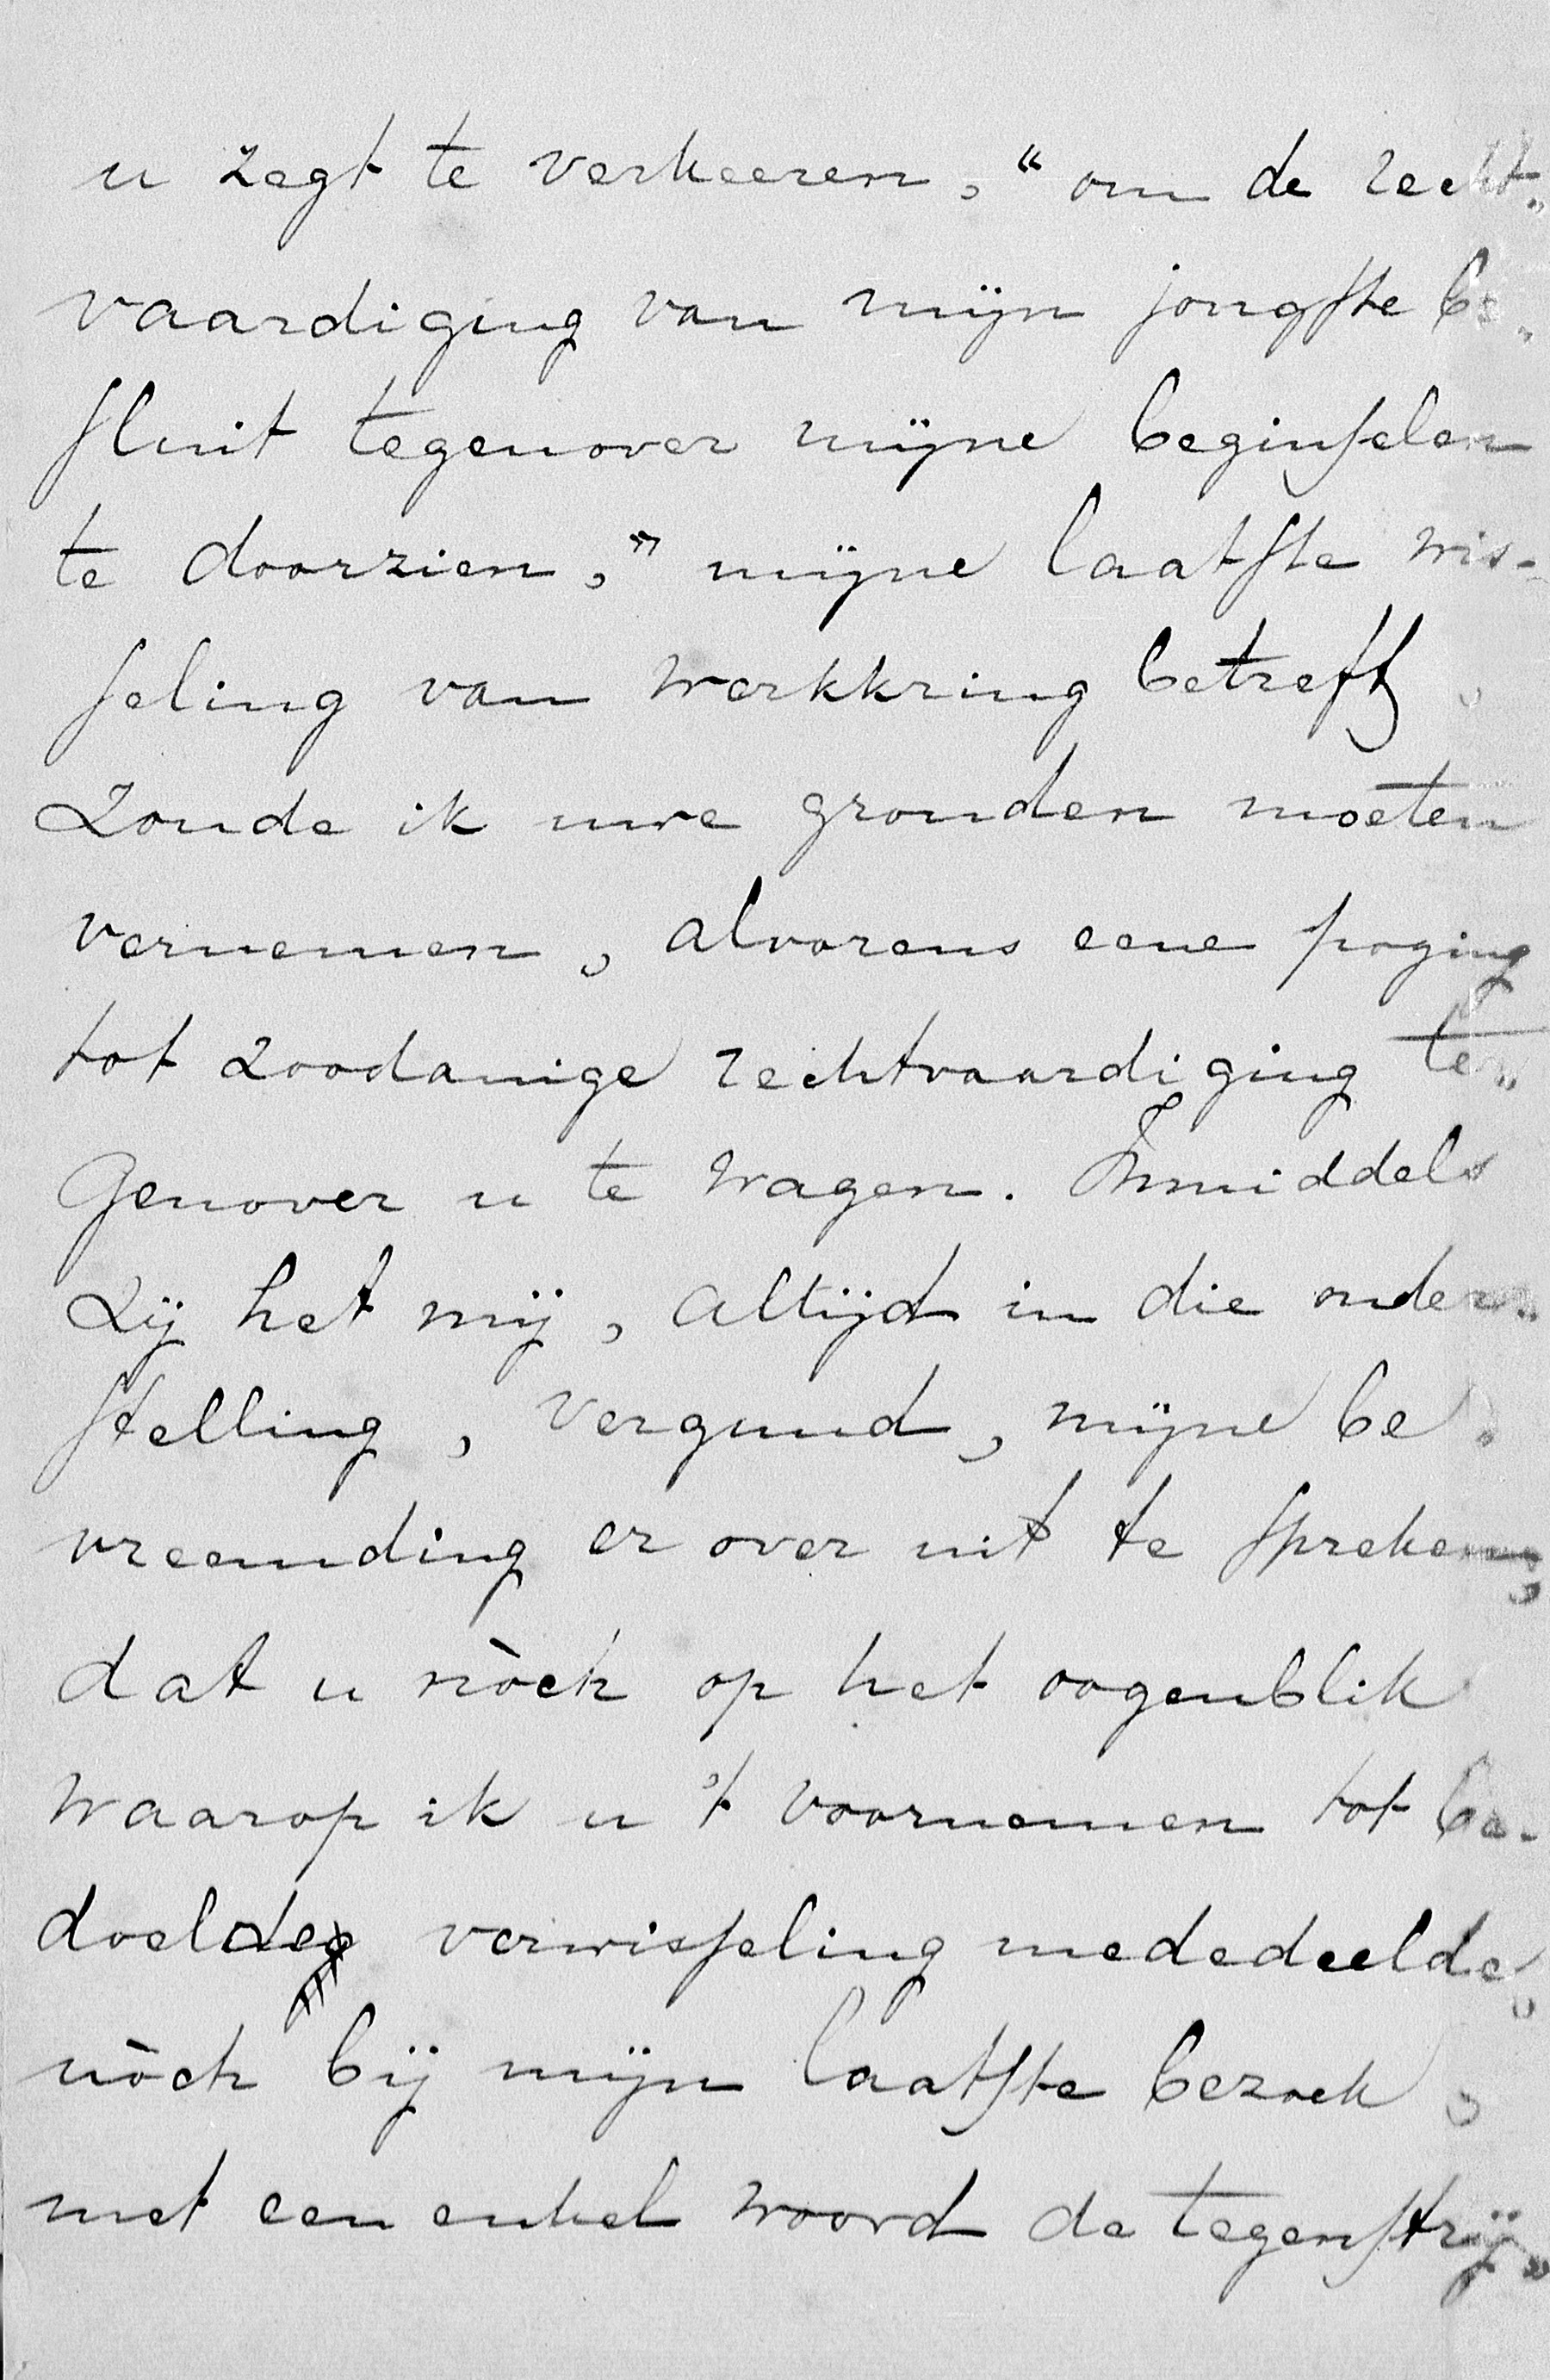 u zegt te verkeeren, “om de recht„
vaardiging van mijn jongste be„
sluit tegenover mijne beginselen
te doorzien,” mijne laatste wis-
seling van werkkring betreft,
Zoude ik uwe gronden moeten
vernemen, alvorens eene poging
tot zoodanige rechtvaardiging te„
genover u te wagen. Inmiddels
Zij het mij, altijd in die onder„
stelling, vergund, mijne be„
vreemding er over uit te spreken,
dat u nòch op het oogenblik
waarop ik u 't voornemen tot be-
doelde verwisseling mededeelde,
nòch bij mijn laatste bezoek,
met een enkel woord de tegenstrij„